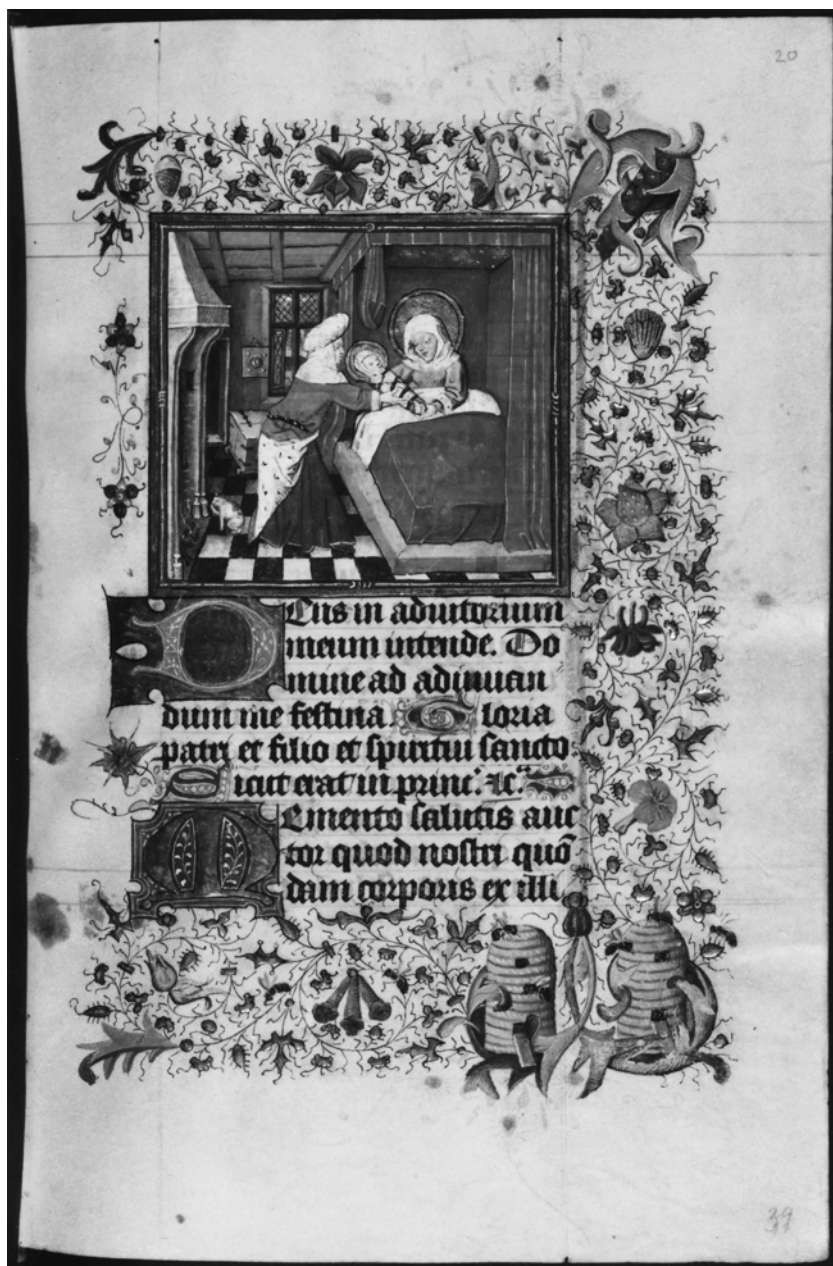 20
Deus in adiutorium
meum intende. Do
mine ad adiuuan
dum me festina. Gloria
patri et filio et spiritui sancto
Sicut erat in princ. &c.
Memento salutis auc
tor quod nostri quō
dam corporis ex illi
39